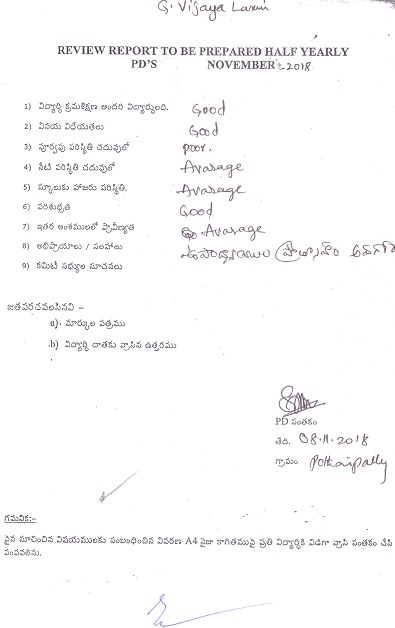 G. Vijaya Laxmi
REVIEW REPORT TO BE PREPARED HALF YEARLY
PD'S NOVEMBER - 2018
1) విద్యార్థి క్రమశిక్షణ అందరి విద్యార్థులది. Good
2) వినయ విధేయతలు Good
3) పూర్వపు పరిస్థితి చదువులో poor.
4) నేటి పరిస్థితి చదువులో Avarage
5) స్కూలుకు హాజరు పరిస్థితి. Avarage
6) పరిశుభ్రత Good
7) ఇతర అంశములలో ప్రావీణ్యత Avarage
8) అభిప్రాయాలు / సలహాలు
9) కమిటీ సభ్యుల సూచనలు
జతపరచవలసినవి –
a) మార్కుల పత్రము
b) విద్యార్థి దాతకు వ్రాసిన ఉత్తరము
PD సంతకం
తేది. 08.11.2018
గ్రామం Pothaipally
గమనిక:-
పైన సూచించిన విషయములకు సంబంధించిన వివరణ A4 సైజు కాగితముపై ప్రతి విద్యార్థికి విడిగా వ్రాసి సంతకం చేసి
పంపవలెను.